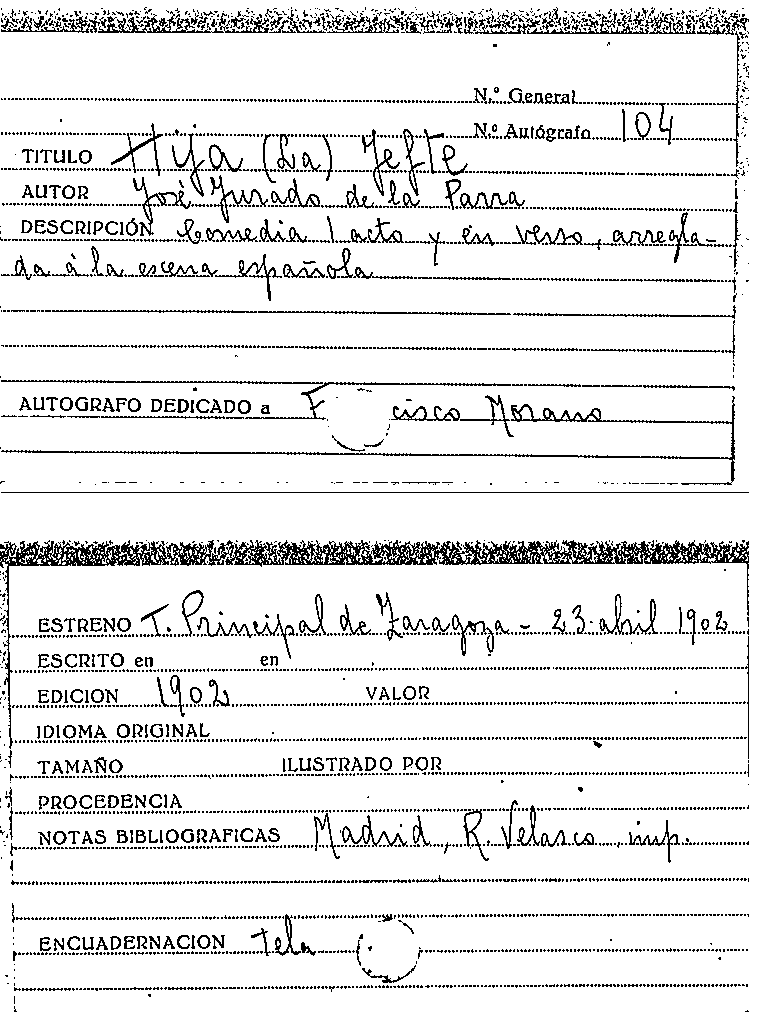 N.º General
N.º Autógrafo 104
TITULO Hija (La) Jefte
AUTOR José Jurado de la Parra
DESCRIPCIÓN Comedia 1 acto y en verso, arregla-
da á la escena española
AUTOGRAFO DEDICADO a F cisco Morano
ESTRENO T. Principal de Zaragoza - 23 abril 1902
ESCRITO en en
EDICION 1902 VALOR
IDIOMA ORIGINAL
TAMAÑO ILUSTRADO POR
PROCEDENCIA
NOTAS BIBLIOGRAFICAS Madrid, R. Velasco, imp.
ENCUADERNACION Tela